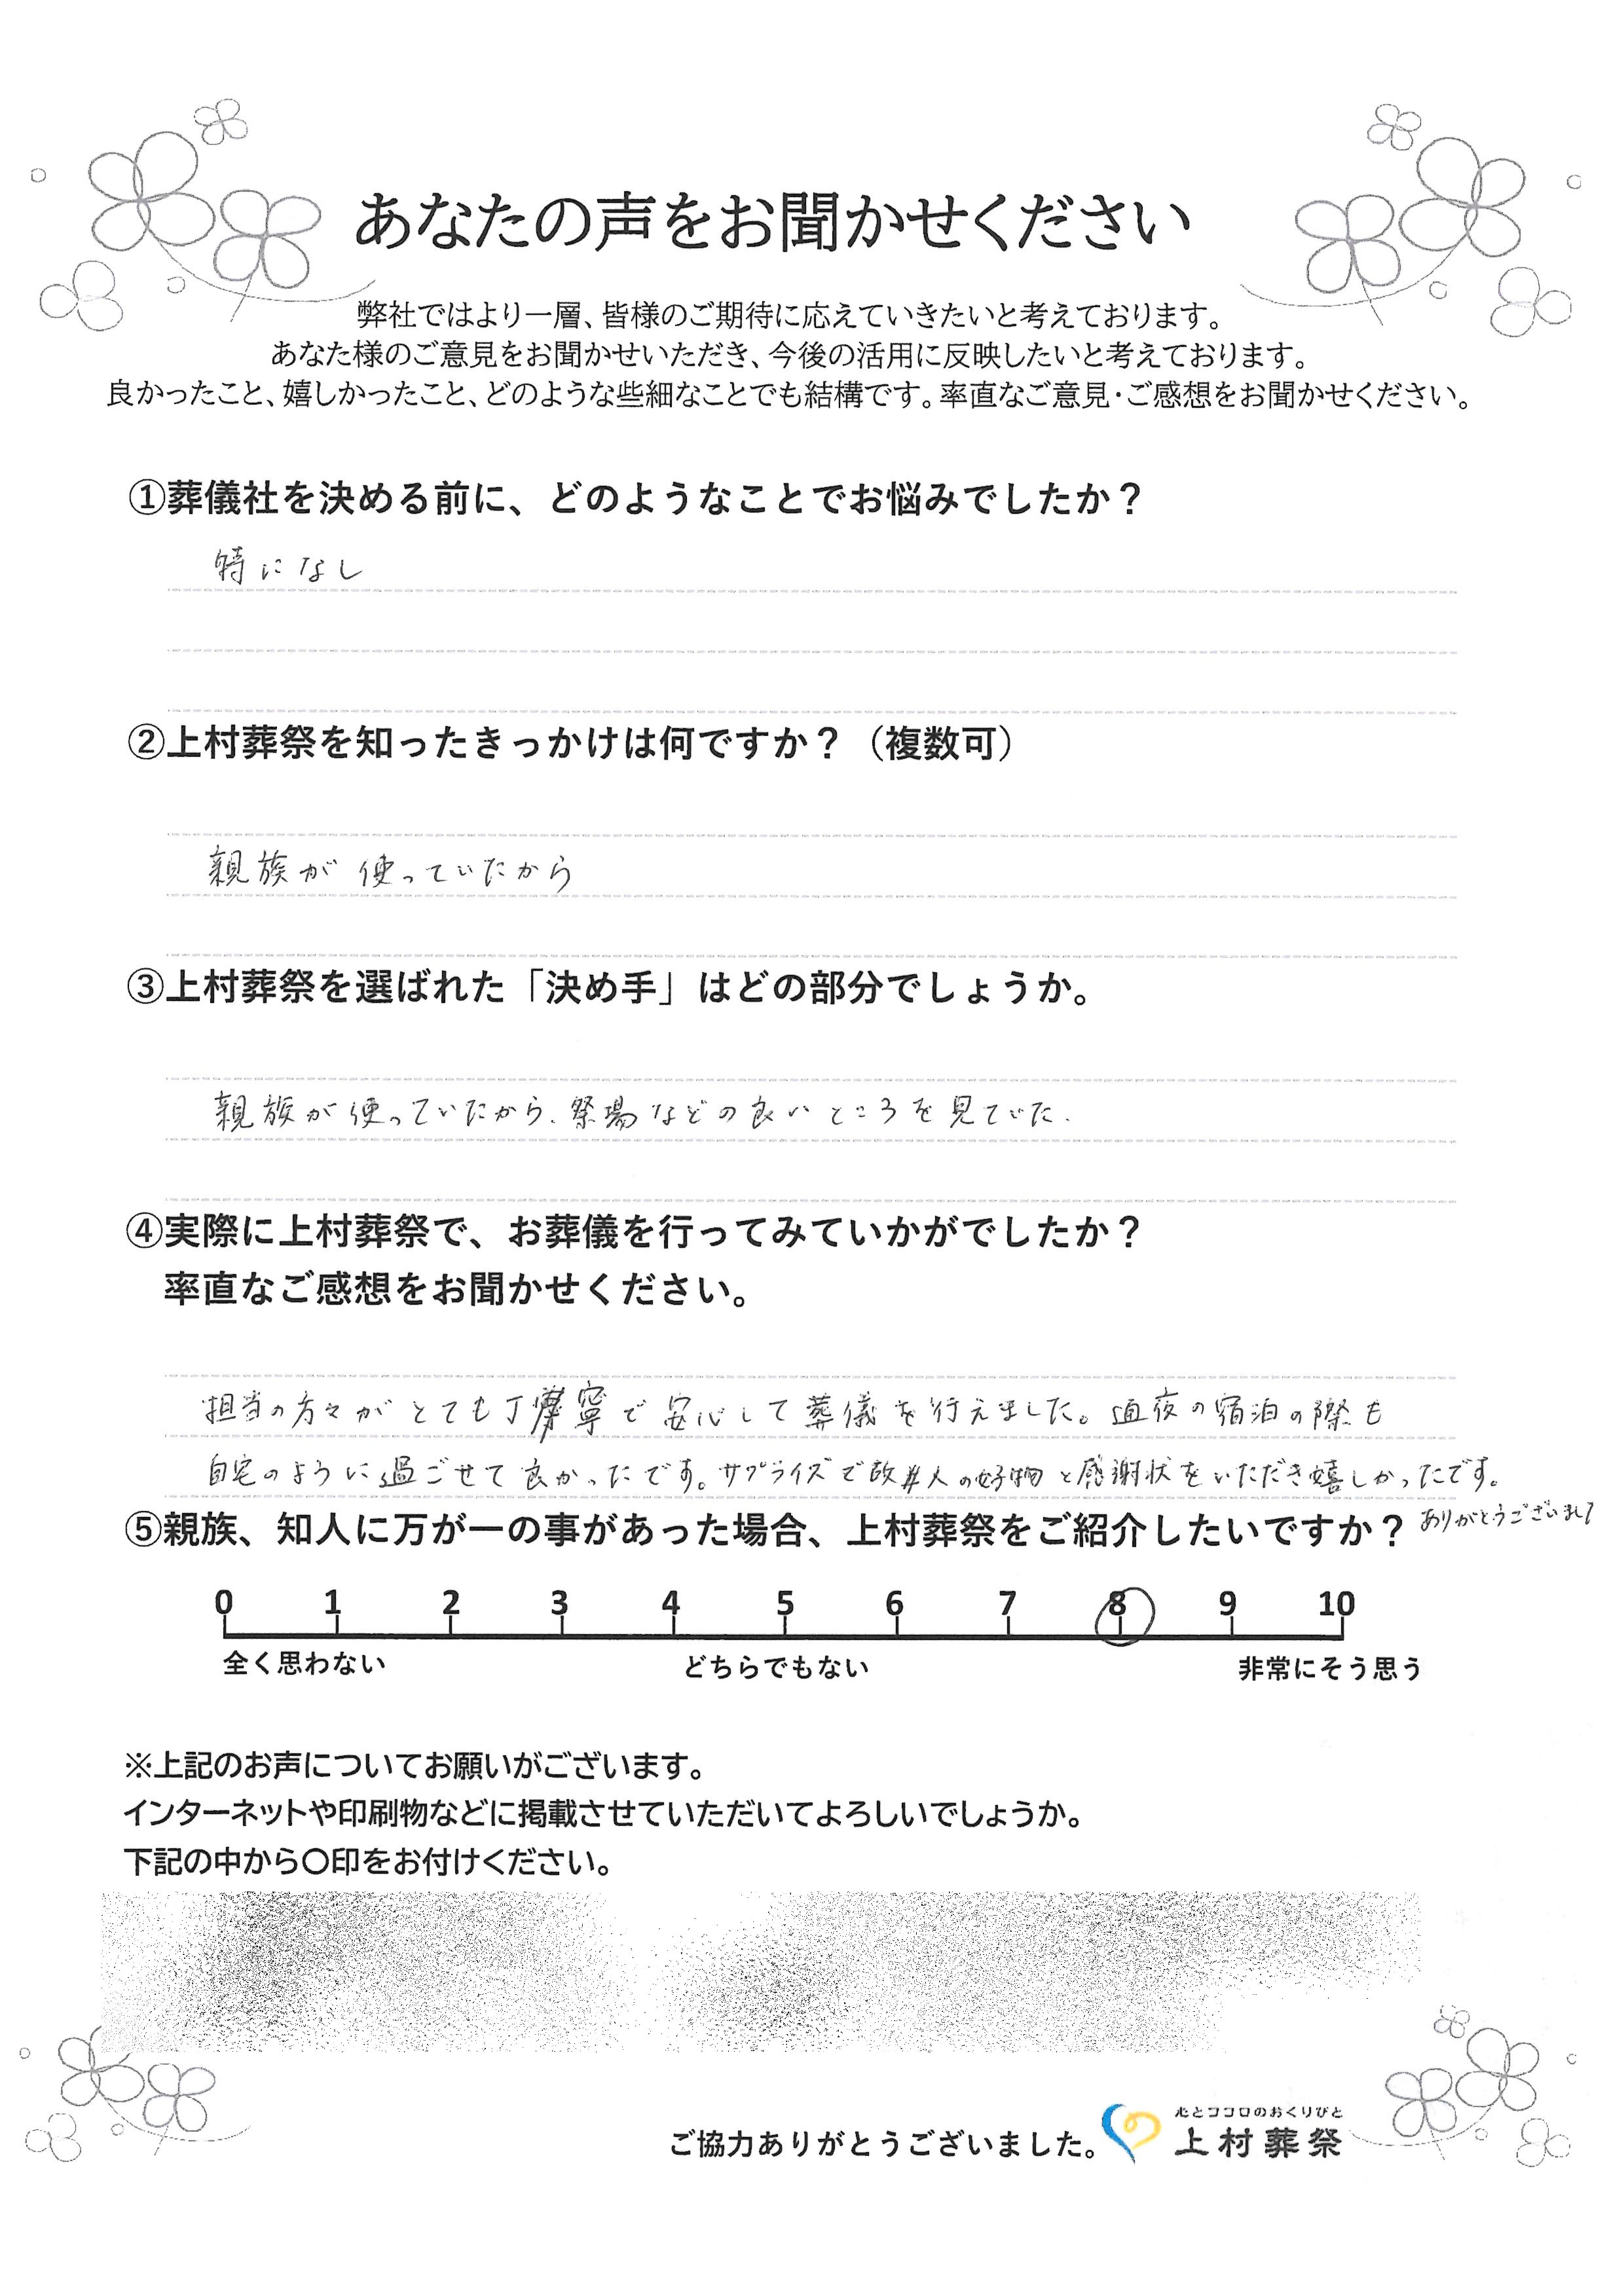 あなたの声をお聞かせください
弊社ではより一層、皆様のご期待に応えていきたいと考えております。
あなた様のご意見をお聞かせいただき、今後の活用に反映したいと考えております。
良かったこと、嬉しかったこと、どのような些細なことでも結構です。率直なご意見・ご感想をお聞かせください。
①葬儀社を決める前に、どのようなことでお悩みでしたか？
特になし
②上村葬祭を知ったきっかけは何ですか？（複数可）
親族が使っていたから
③上村葬祭を選ばれた「決め手」はどの部分でしょうか。
親族が使っていたから、祭場などの良いところを見ていた.
④実際に上村葬祭で、お葬儀を行ってみていかがでしたか？
率直なご感想をお聞かせください。
担当の方々がとても丁寧で安心して葬儀を行えました。通夜の宿泊の際も
自宅のように過ごせて良かったです。サプライズで故人の好物と感謝状をいただき嬉しかったです。
ありがとうございまし
⑤親族、知人に万が一の事があった場合、上村葬祭をご紹介したいですか？
0 1 2 3 4 5 6 7 8 9 10
全く思わない どちらでもない 非常にそう思う
※上記のお声についてお願いがございます。
インターネットや印刷物などに掲載させていただいてよろしいでしょうか。
下記の中から〇印をお付けください。
心とココロのおくりびと
ご協力ありがとうございました。 上村葬祭